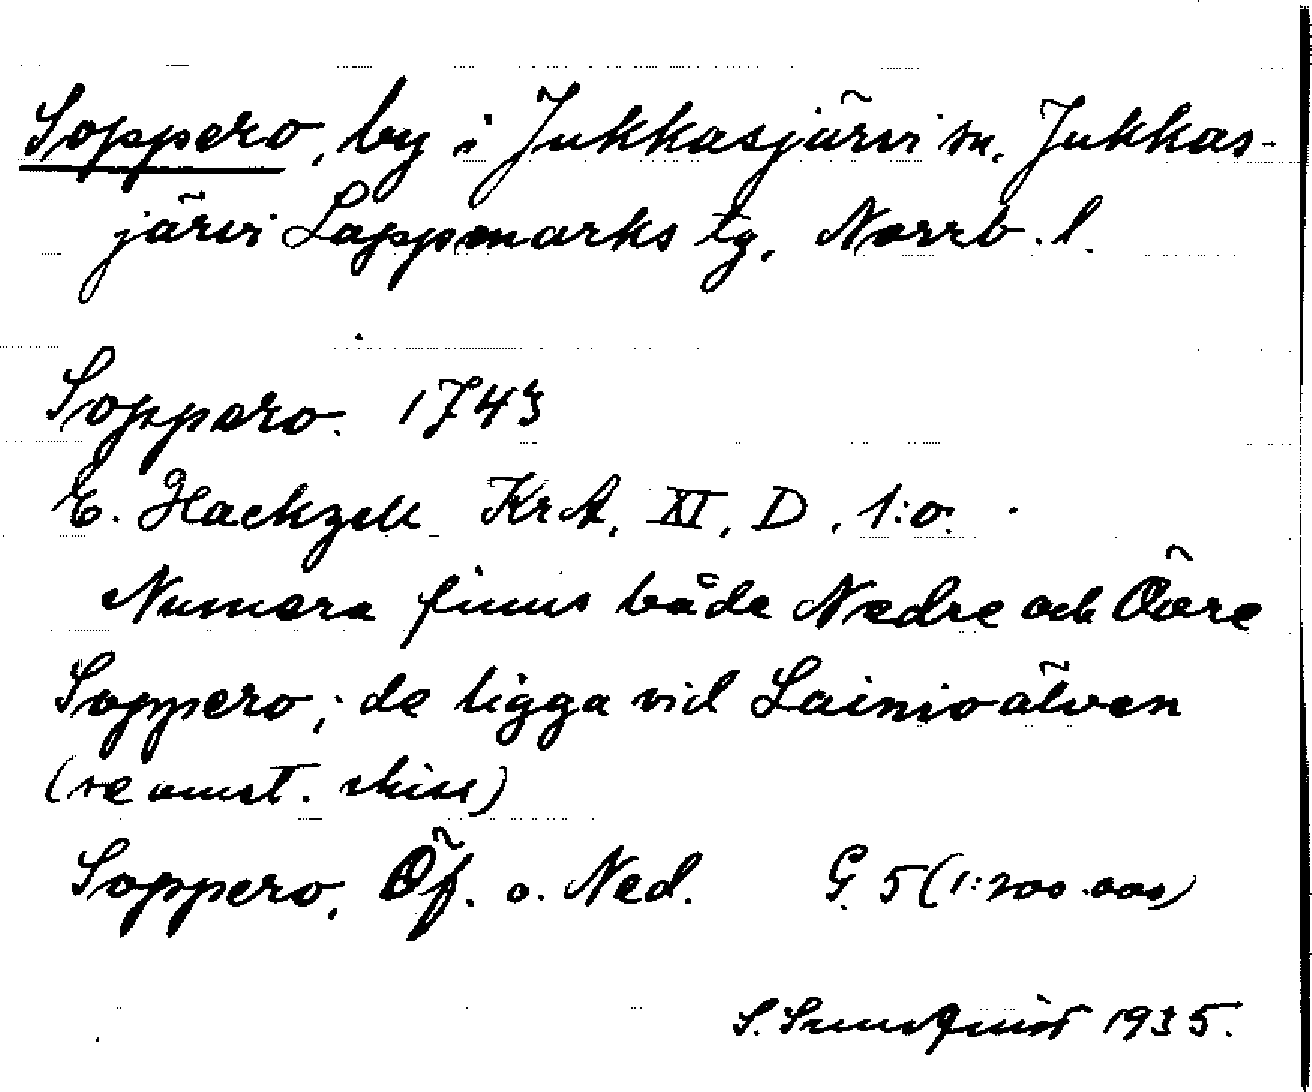 Soppero, by i Jukkasjärvi sn, Jukkas-
järvi Lappmarks tg, Norrb. l.
Soppero. 1743
E. Hackzell KrA, XI, D, 1:o.
Numera finns både Nedre och Övre
Soppero; de ligga vid Lainioälven
(se omst. skiss)
Soppero, Öf. o. Ned. G. 5 (1:200.000)
S. Sundquist 1935.